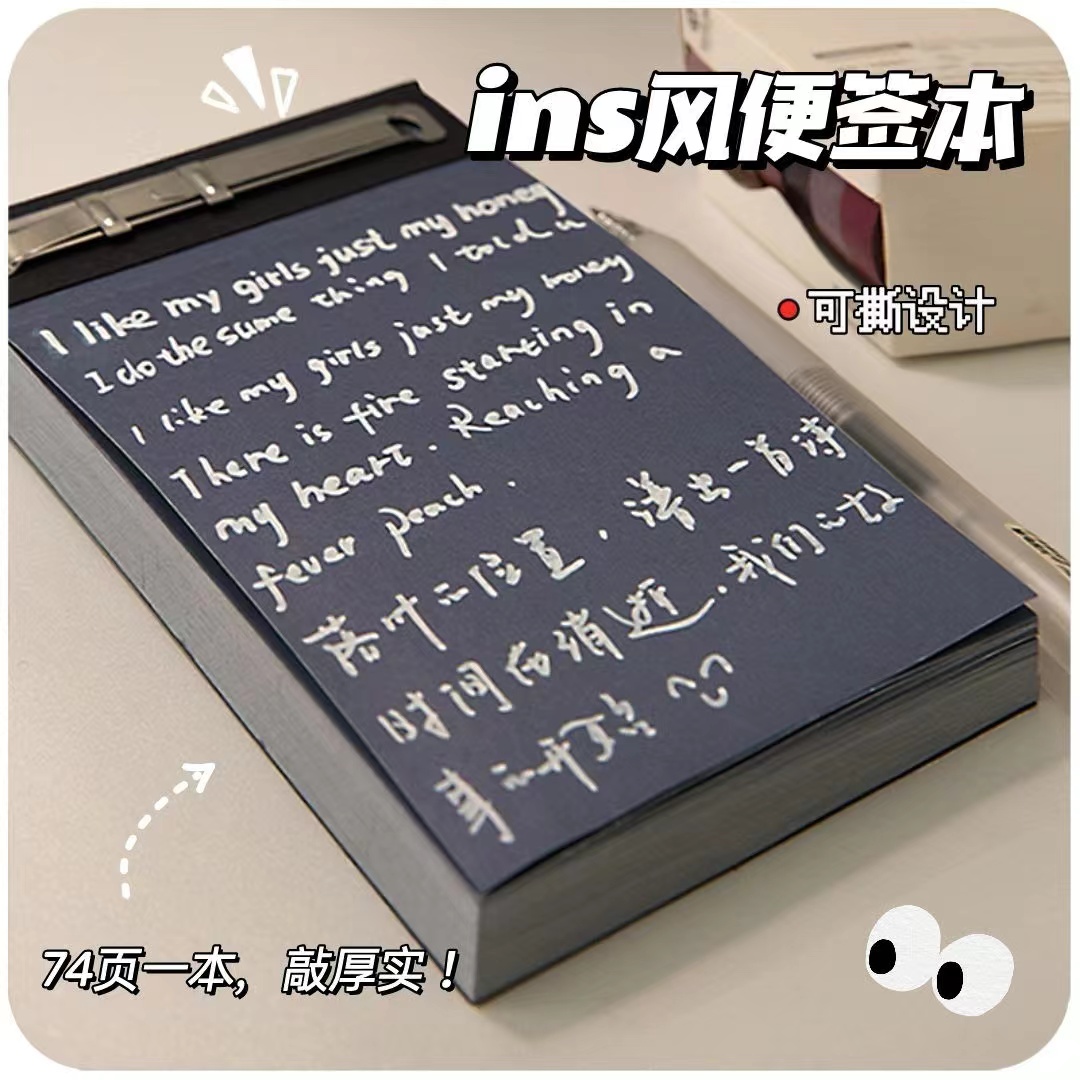 ins风便签本
可撕设计
I like my girls just my honey
I do the same thing I told u
I like my girls just my honey
There is fire starting in
my heart. Reaching a
fever peach.
落叶的位置,谱出一首诗
时间在消逝.我们的故
事的开始
74页一本,敲厚实!